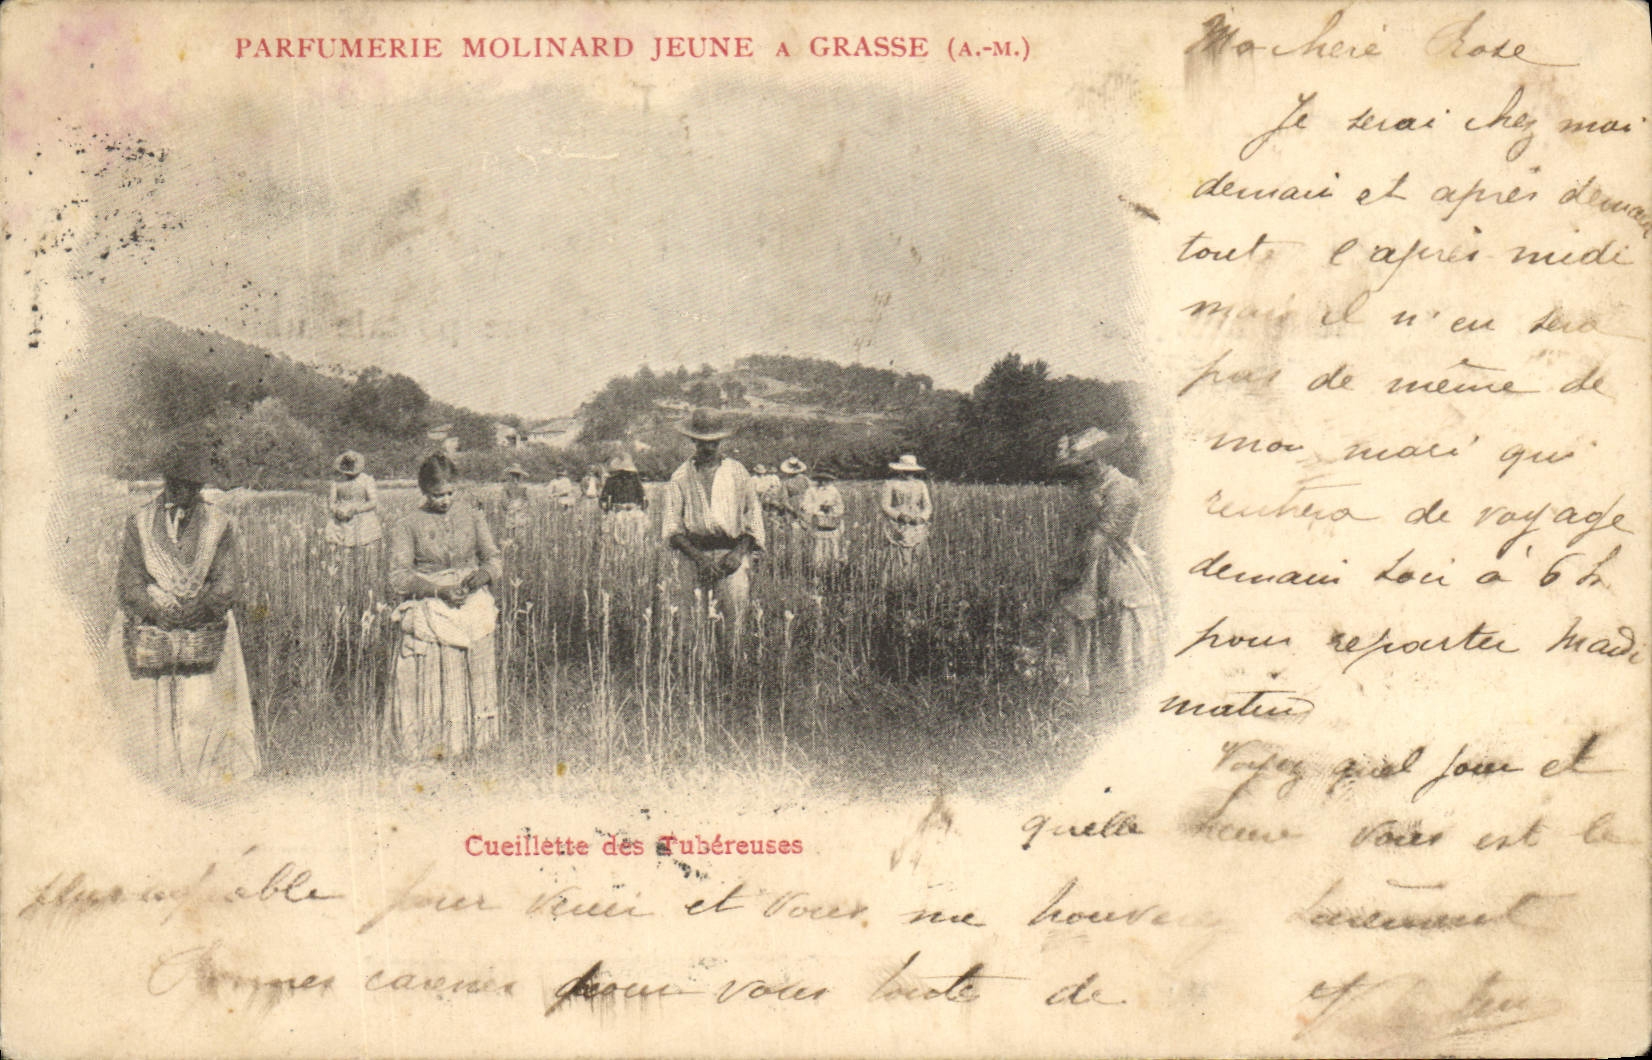 PARFUMERIE MOLINARD JEUNE A GRASSE (A.-M.)
Ma chere Rose
Je serai chez moi
demain et après demain
toute l'après-midi
mais il n'en sera
pas de même de
mon mari qui
rentrera de voyage
demain soir à 6 h
pour repartir Mardi
matin
Voyez quel jour et
quelle heure vous est le
Cueillette des Tubéreuses
plus agréable pour venir et vous me trouverez surement
Bonnes caresses pour vous toute de